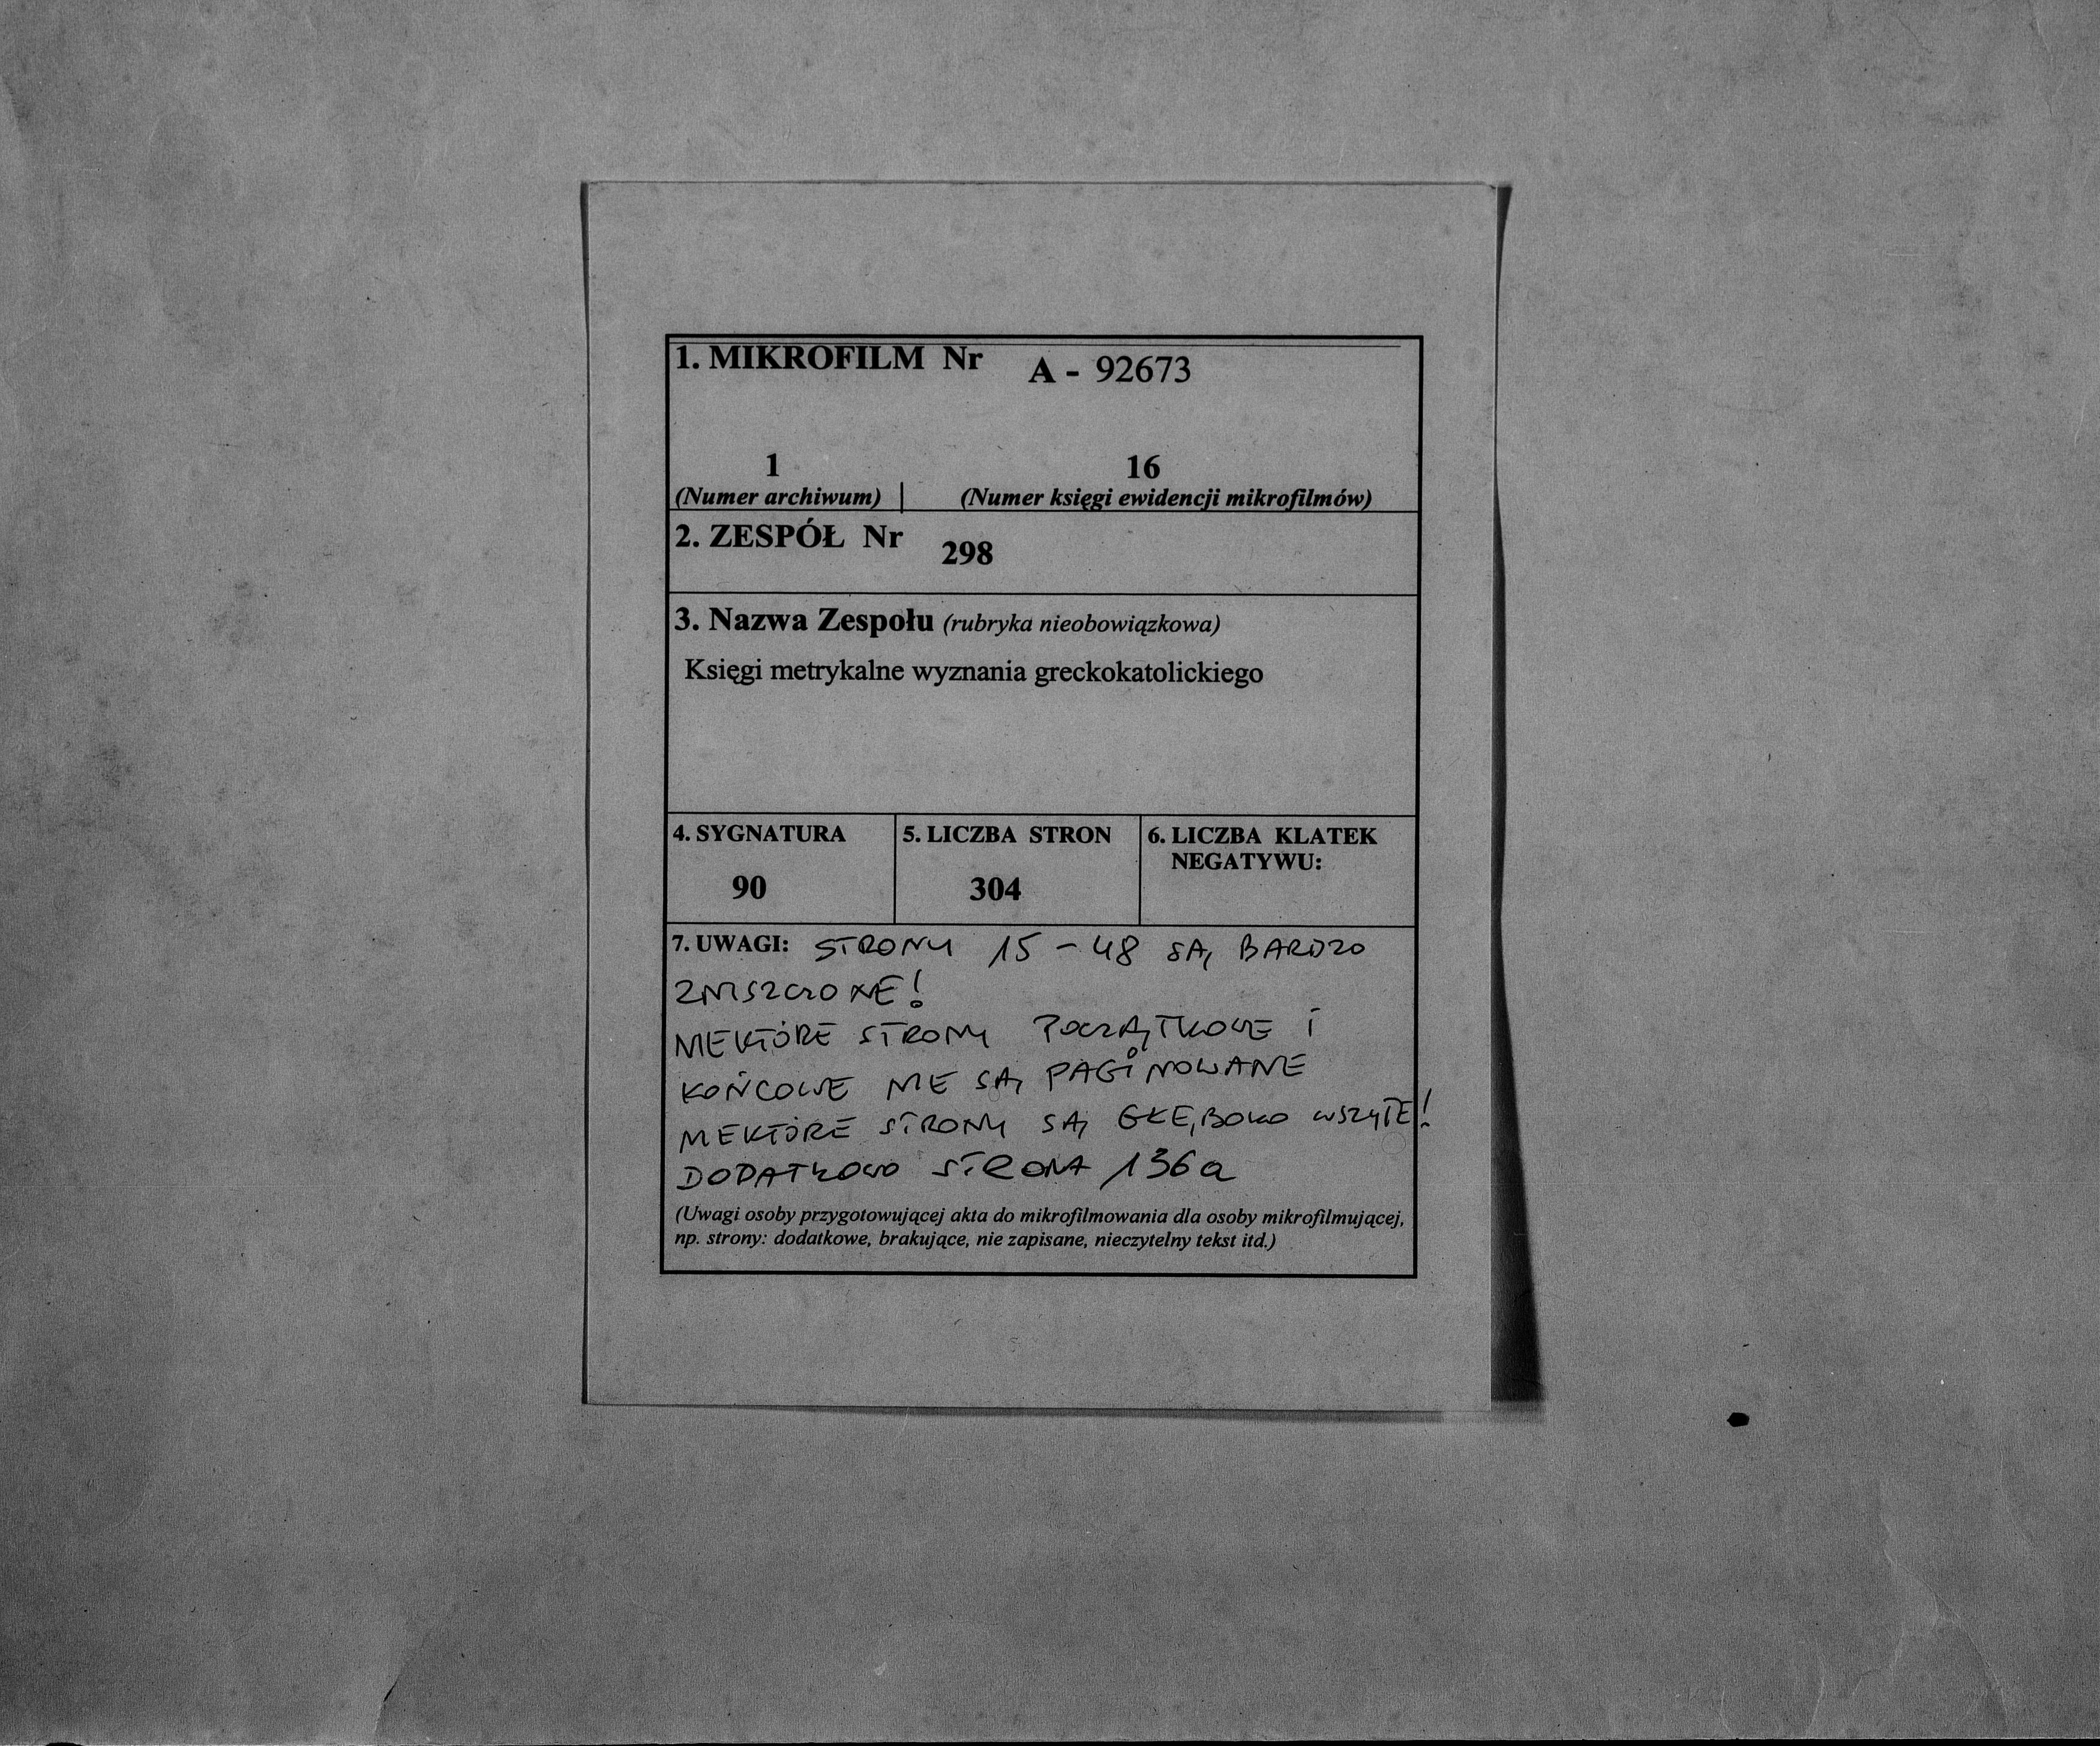 1. MIKROFILM Nr A - 92673
1 16
(Numer archiwum) | (Numer księgi ewidencji mikrofilmów)
2. ZESPÓŁ Nr 298
3. Nazwa Zespołu (rubryka nieobowiązkowa)
Księgi metrykalne wyznania greckokatolickiego
4. SYGNATURA 5. LICZBA STRON 6. LICZBA KLATEK
NEGATYWU:
90 304
7. UWAGI: STRONY 15 - 48 SĄ BARDZO
ZNISZCZONE!
NIEKTÓRE STRONY POCZĄTKOWE I
KOŃCOWE NIE SĄ PAGINOWANE
NIEKTÓRE STRONY SĄ GŁĘBOKO WSZYTE!
DODATKOWO STRONA 136a
(Uwagi osoby przygotowującej akta do mikrofilmowania dla osoby mikrofilmującej,
np. strony: dodatkowe, brakujące, nie zapisane, nieczytelny tekst itd.)